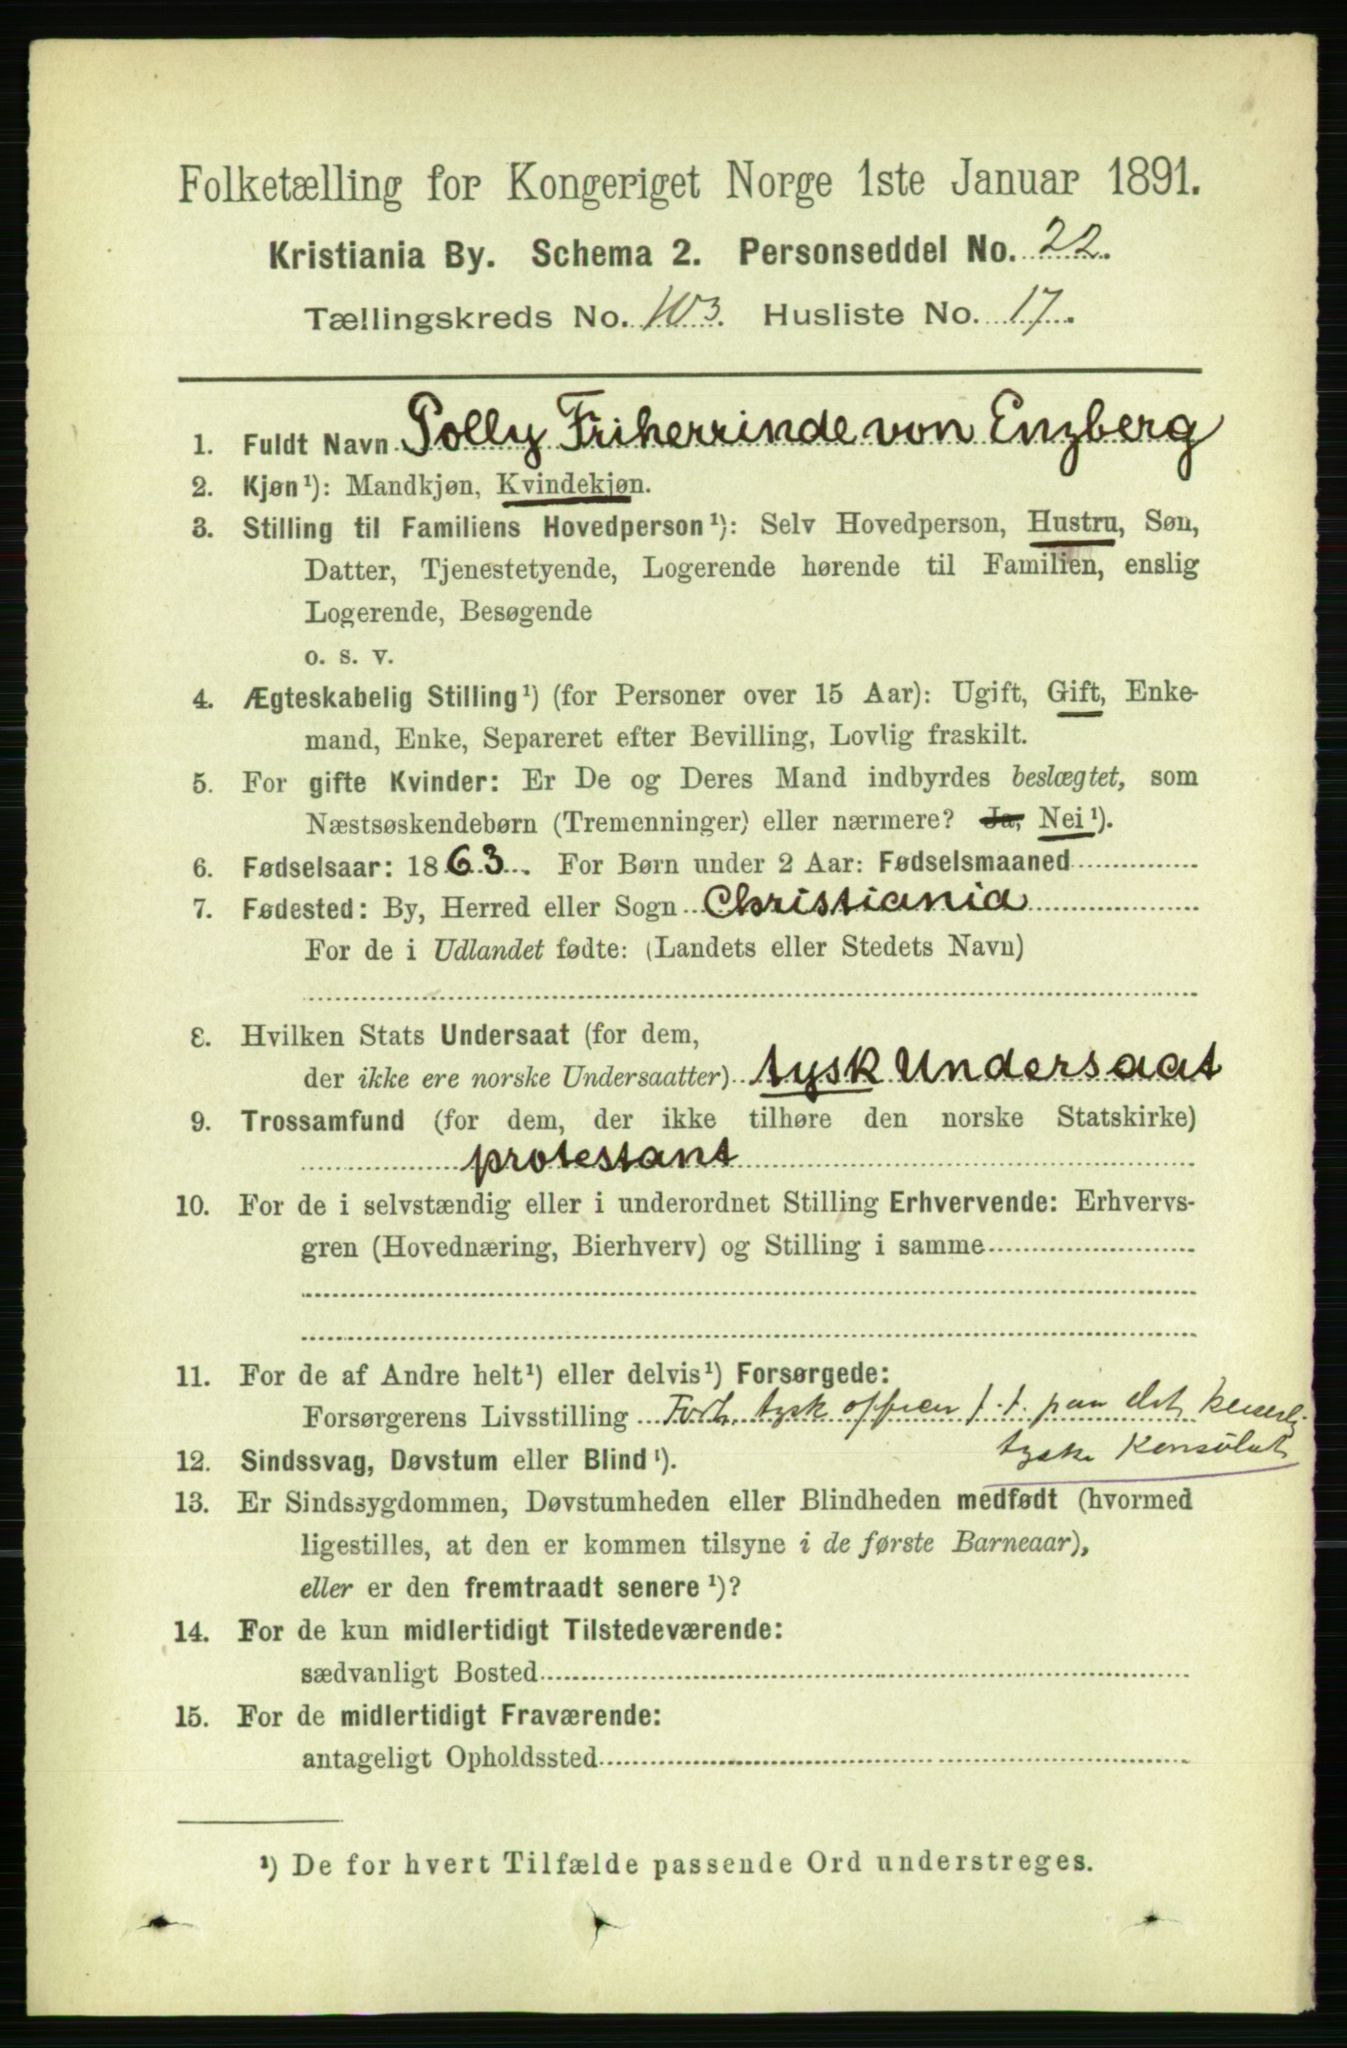 Folketælling for Kongeriget Norge 1ste Januar 1891.
Kristiania By. Schema 2. Personseddel No. 22.
Tællingskreds No. 103. Husliste No. 17.
1. Fuldt Navn Polly Friherrinde von Enzberg
2. Kjøn¹): Mandkjøn, Kvindekjøn.
3. Stilling til Familiens Hovedperson¹): Selv Hovedperson, Hustru, Søn,
Datter, Tjenestetyende, Logerende hørende til Familien, enslig
Logerende, Besøgende
o. s. v.
4. Ægteskabelig Stilling¹) (for Personer over 15 Aar): Ugift, Gift, Enke-
mand, Enke, Separeret efter Bevilling, Lovlig fraskilt.
5. For gifte Kvinder: Er De og Deres Mand indbyrdes beslægtet, som
Næstsøskendebørn (Tremenninger) eller nærmere? Ja, Nei¹).
6. Fødselsaar: 1863. For Børn under 2 Aar: Fødselsmaaned
7. Fødested: By, Herred eller Sogn Christiania
For de i Udlandet fødte: (Landets eller Stedets Navn)
8. Hvilken Stats Undersaat (for dem,
der ikke ere norske Undersaatter) tysk Undersaat
9. Trossamfund (for dem, der ikke tilhøre den norske Statskirke)
protestant
10. For de i selvstændig eller i underordnet Stilling Erhvervende: Erhvervs-
gren (Hovednæring, Bierhverv) og Stilling i samme
11. For de af Andre helt¹) eller delvis¹) Forsørgede:
Forsørgerens Livsstilling tysk officer f. t. paa det keiserlig
tyske Konsulat
12. Sindssvag, Døvstum eller Blind¹).
13. Er Sindssygdommen, Døvstumheden eller Blindheden medfødt (hvormed
ligestilles, at den er kommen tilsyne i de første Barneaar),
eller er den fremtraadt senere¹)?
14. For de kun midlertidigt Tilstedeværende:
sædvanligt Bosted
15. For de midlertidigt Fraværende:
antageligt Opholdssted
¹) De for hvert Tilfælde passende Ord understreges.